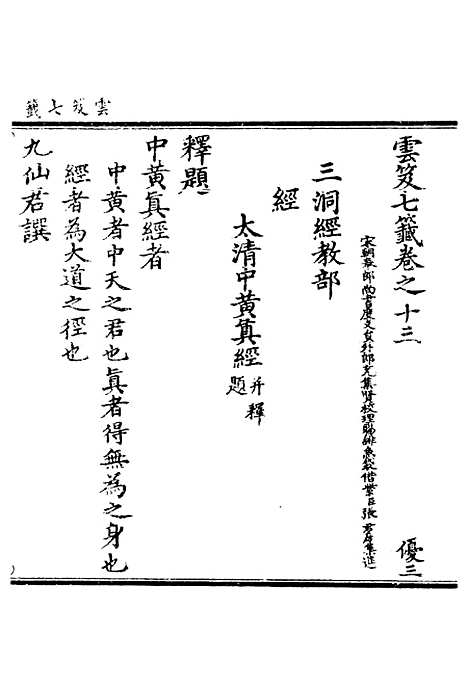 雲笈七籤
雲笈七籤卷之十三
優三
宋朝奉郎尚書度支員外郎充集賢校理賜緋魚袋借紫臣張君房集進
三洞經教部
經
太清中黃真經并釋題
釋題
中黃真經者
中黃者中天之君也真者得無為之身也
經者為大道之徑也
九仙君譔